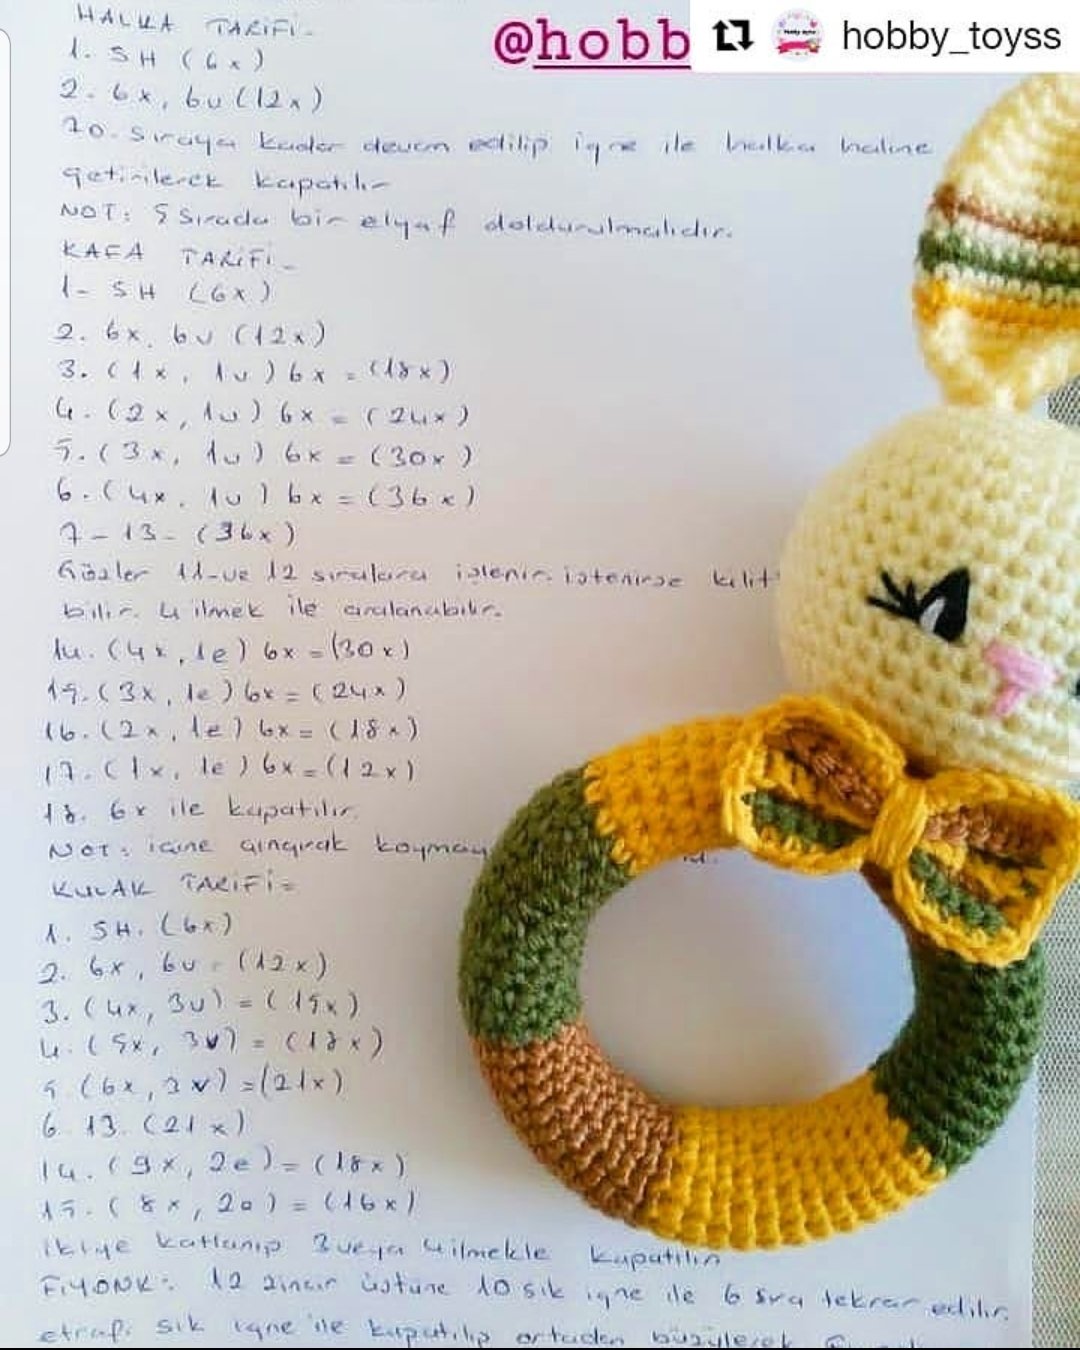 @hobb
hobby_toyss
HALKA TARİFİ-
1. SH (6x)
2. 6x, 6u (12x)
70. sıraya kadar devam edilip iğne ile halka haline
getirilerek kapatılır
NOT: 5 Sırada bir elyaf doldurulmalıdır.
KAFA TARİFİ-
1- SH (6x)
2. 6x, 6u (12x)
3. (1x, 1u) 6x = (18x)
4. (2x, 1u) 6x = (24x)
5. (3x, 1u) 6x = (30x)
6. (4x, 1u) 6x = (36x)
7-13- (36x)
Gözler 11-ve 12 sıralara işlenir. istenirse kilit
bilir. 4 ilmek ile aralanabilir.
14. (4x, 1e) 6x = (30x)
15. (3x, 1e) 6x = (24x)
16. (2x, 1e) 6x = (18x)
17. (1x, 1e) 6x = (12x)
18. 6x ile kapatılır.
NOT: içine çıngırak koymay
KULAK TARİFİ=
1. SH. (6x)
2. 6x, 6u = (12x)
3. (4x, 3u) = (15x)
4. (5x, 3v) = (18x)
5 (6x, 3v) = (21x)
6. 13. (21x)
14. (9x, 2e) = (18x)
15. (8x, 2e) = (16x)
ikiye katlanıp 3 veya 4 ilmekle kapatılır
FİYONK: 12 zincir üstüne 10 sık iğne ile 6 sıra tekrar edilir.
etrafı sık iğne ile kapatılıp ortadan büzülerek